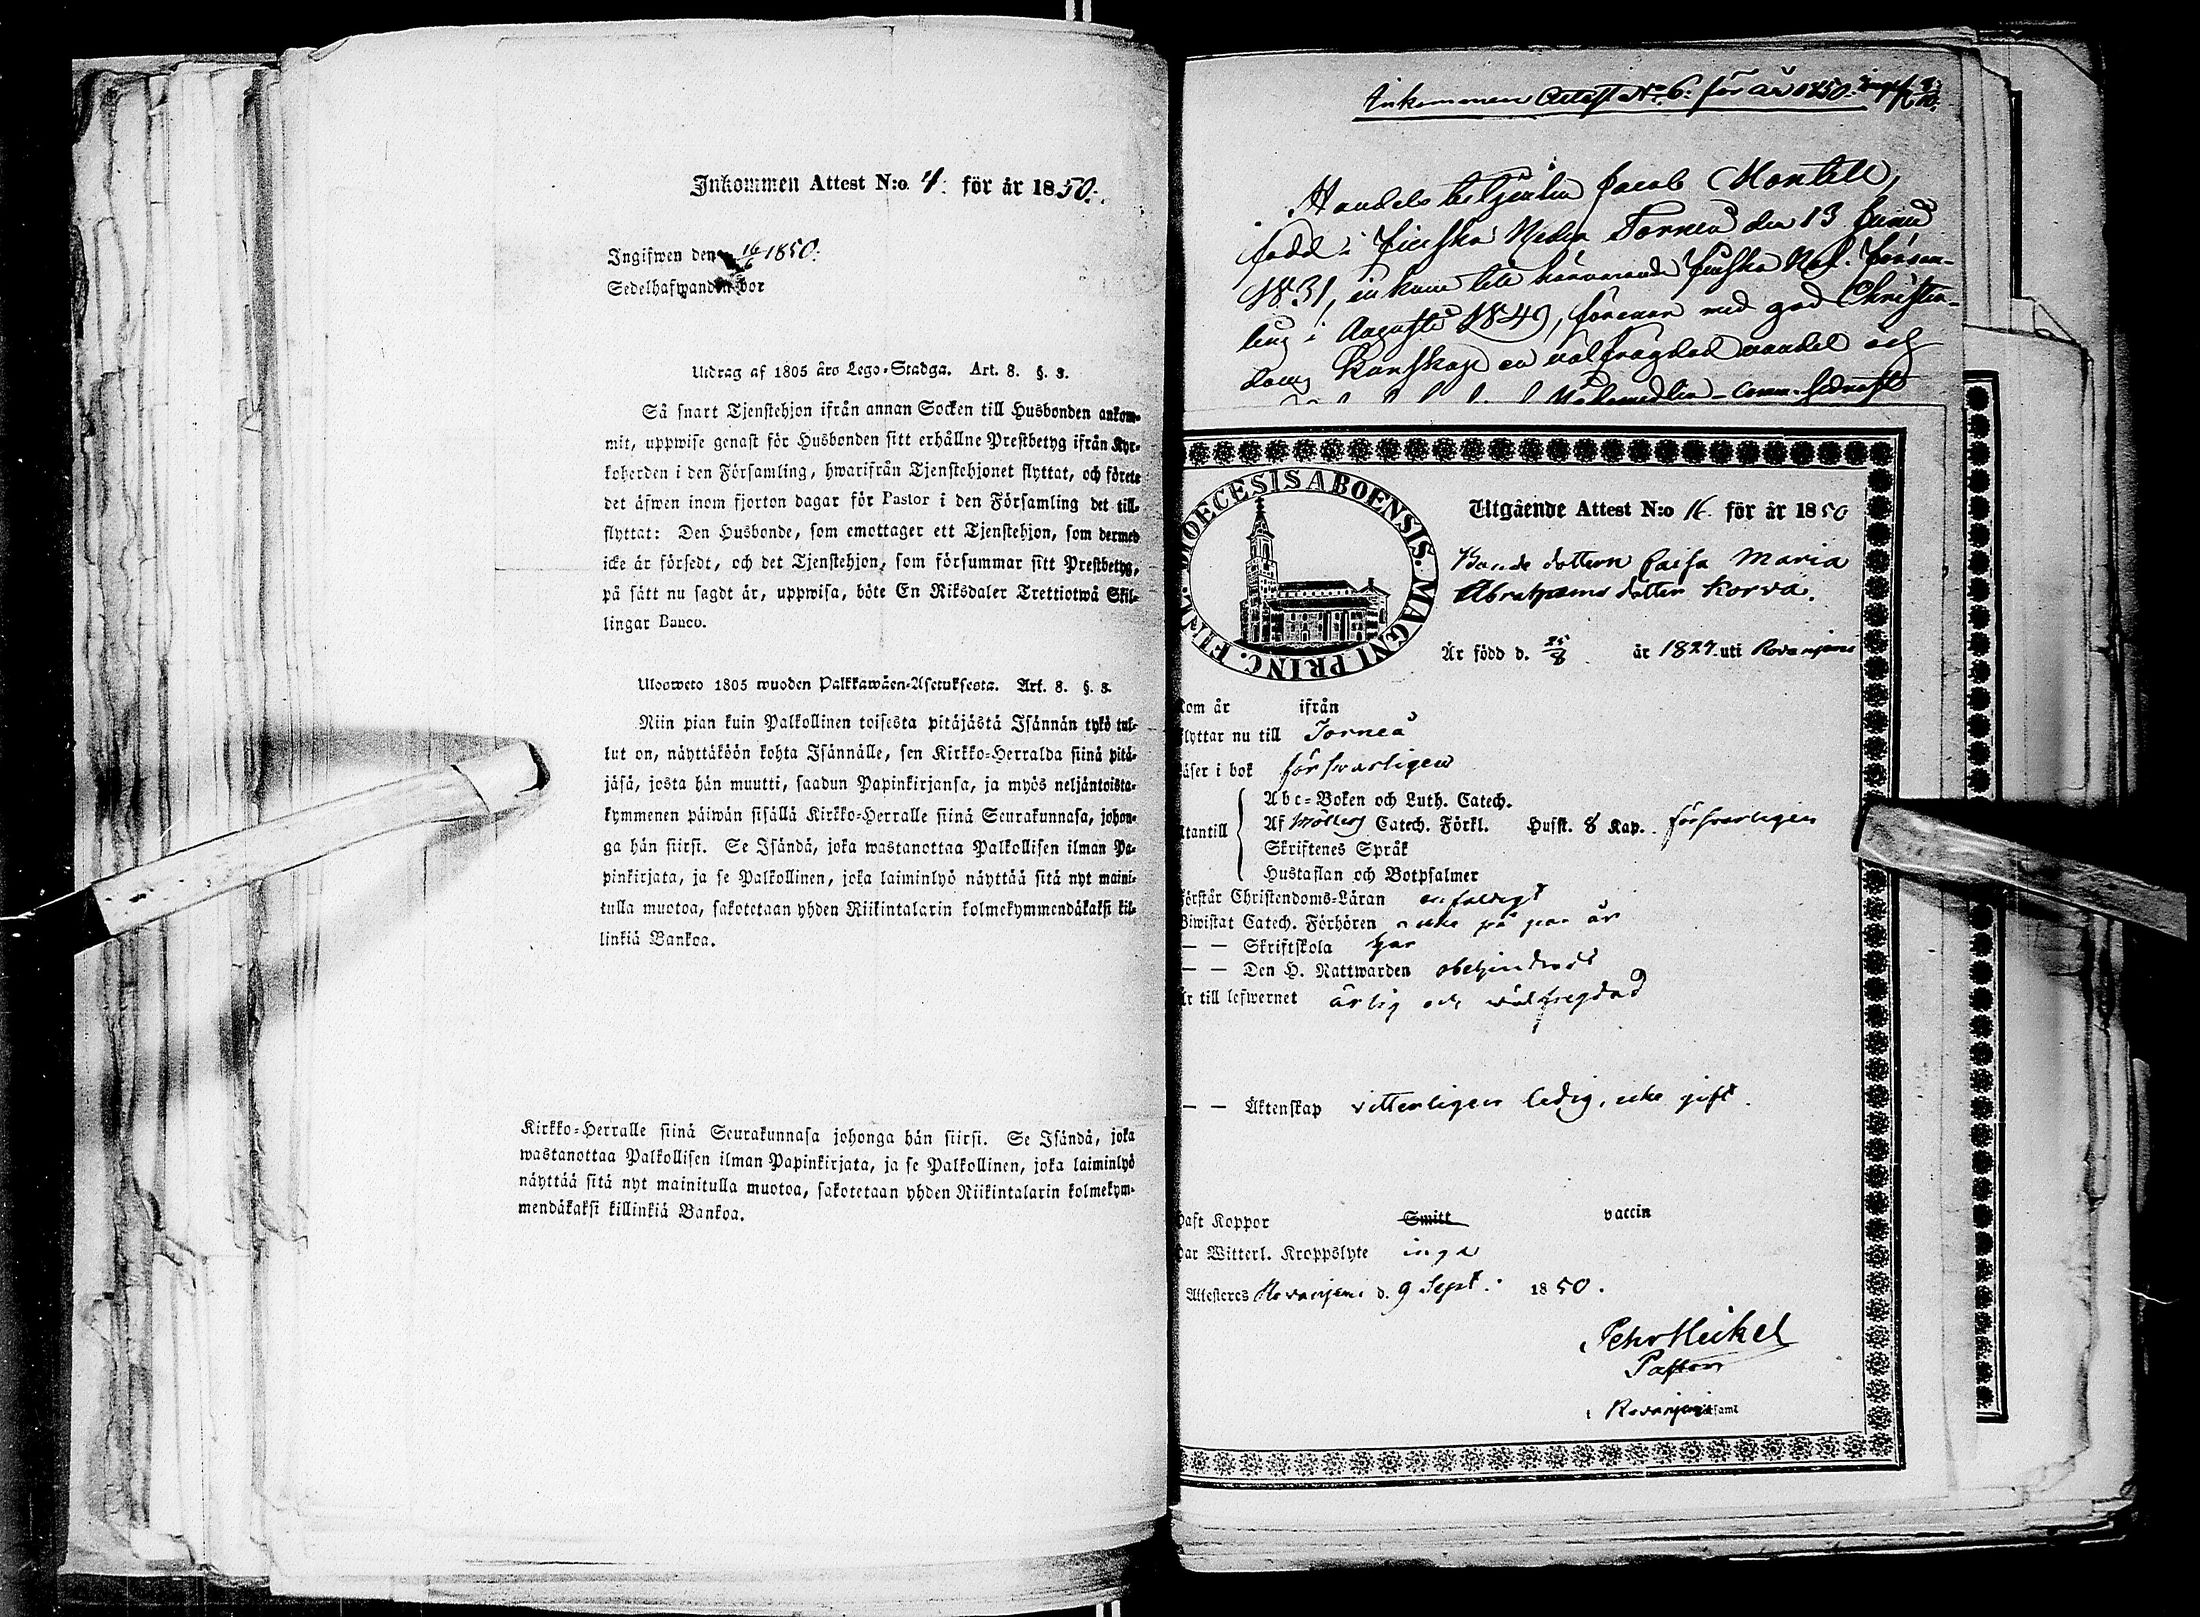 Inkommen Attest N:o 4. för år 1850.
Ingifwen den 16/6 1850.
Sedelhafwanden bor
Utdrag af 1805 års Lego-Stadga. Art. 8. §. 3.
Så snart Tjenstehjon ifrån annan Socken till Husbonden ankom-
mit, uppwise genast för Husbonden sitt erhållne Prestbetyg ifrån Kyr-
koherden i den Församling, hwarifrån Tjenstehjonet flyttat, och förete
det äfwen inom fjorton dagar för Pastor i den Församling det till-
flyttat: Den Husbonde, som emottager ett Tjenstehjon, som dermed
icke är försedt, och det Tjenstehjon, som försummar sitt Prestbetyg,
på sätt nu sagdt är, uppwisa, böte En Riksdaler Trettiotwå Skil-
lingar Banco.
Ulosweto 1805 wuoden Palkkawäen-Asetuksesta. Art. 8. §. 3.
Niin pian kuin Palkollinen toisesta pitäjästä Isännän tykö tul-
lut on, näyttäköön kohta Isännälle, sen Kirkko-Herralda siinä pitä-
jäsä, josta hän muutti, saadun Papinkirjansa, ja myös neljäntoista-
kymmenen päiwän sisällä Kirkko-Herralle siinä Seurakunnasa, johon-
ga hän siirsi. Se Isändä, joka wastanottaa Palkollisen ilman Pa-
pinkirjata, ja se Palkollinen, joka laiminlyö näyttää sitä nyt maini-
tulla muotoa, sakotetaan yhden Riikintalarin kolmekymmendäkaksi kil-
linkiä Bankoa.
Kirkko-Herralle siinä Seurakunnasa johonga hän siirsi. Se Isändä, joka
wastanottaa Palkollisen ilman Papinkirjata, ja se Palkollinen, joka laiminlyö
näyttää sitä nyt mainitulla muotoa, sakotetaan yhden Riikintalarin kolmekym-
mendäkaksi killinkiä Bankoa.
Inkommen Attest No. 6. för år 1850.
Handels betjenten Jacob Montell,
född i Finska Neder Torneå den 13 Junii
1831, inkom till härvarande finska Ned. försam-
ling i Augusti 1849, förenar med god Christen-
doms kunskap en välfrägdad vandel och
DIOECESIS ABOENSIS. MAGNI PRINC. FINL.
Utgående Attest N:o 16 för år 1850
Bonde dottern Caisa Maria
Abrahams dotter Korva.
Är född d. 25/8 år 1827. uti Rovaniemi
Kom år ifrån
flyttar nu till Torneå
läser i bok försvarligen
Utantill Abc-Boken och Luth. Catech.
Af Möllers Catech. Förkl. Hufst. 8 Kap. försvarligen
Skriftenes Språk
Hustaflan och Botpsalmer
förstår Christendoms-Läran enfaldigt
Biwistat Catech. Förhören icke på par år
— — Skriftskola har
— — Den H. Nattwarden obehindradt
är till lefwernet ärlig och wälfregdad
— — Äktenskap vitterligen ledig, icke gift.
haft Koppor Smitt vaccin
har Witterl. Kroppslyte inga
Attesteres Rovaniemi d. 9 Sept. 1850.
Pehr Heikel
Pastor
i Rovaniemi samt